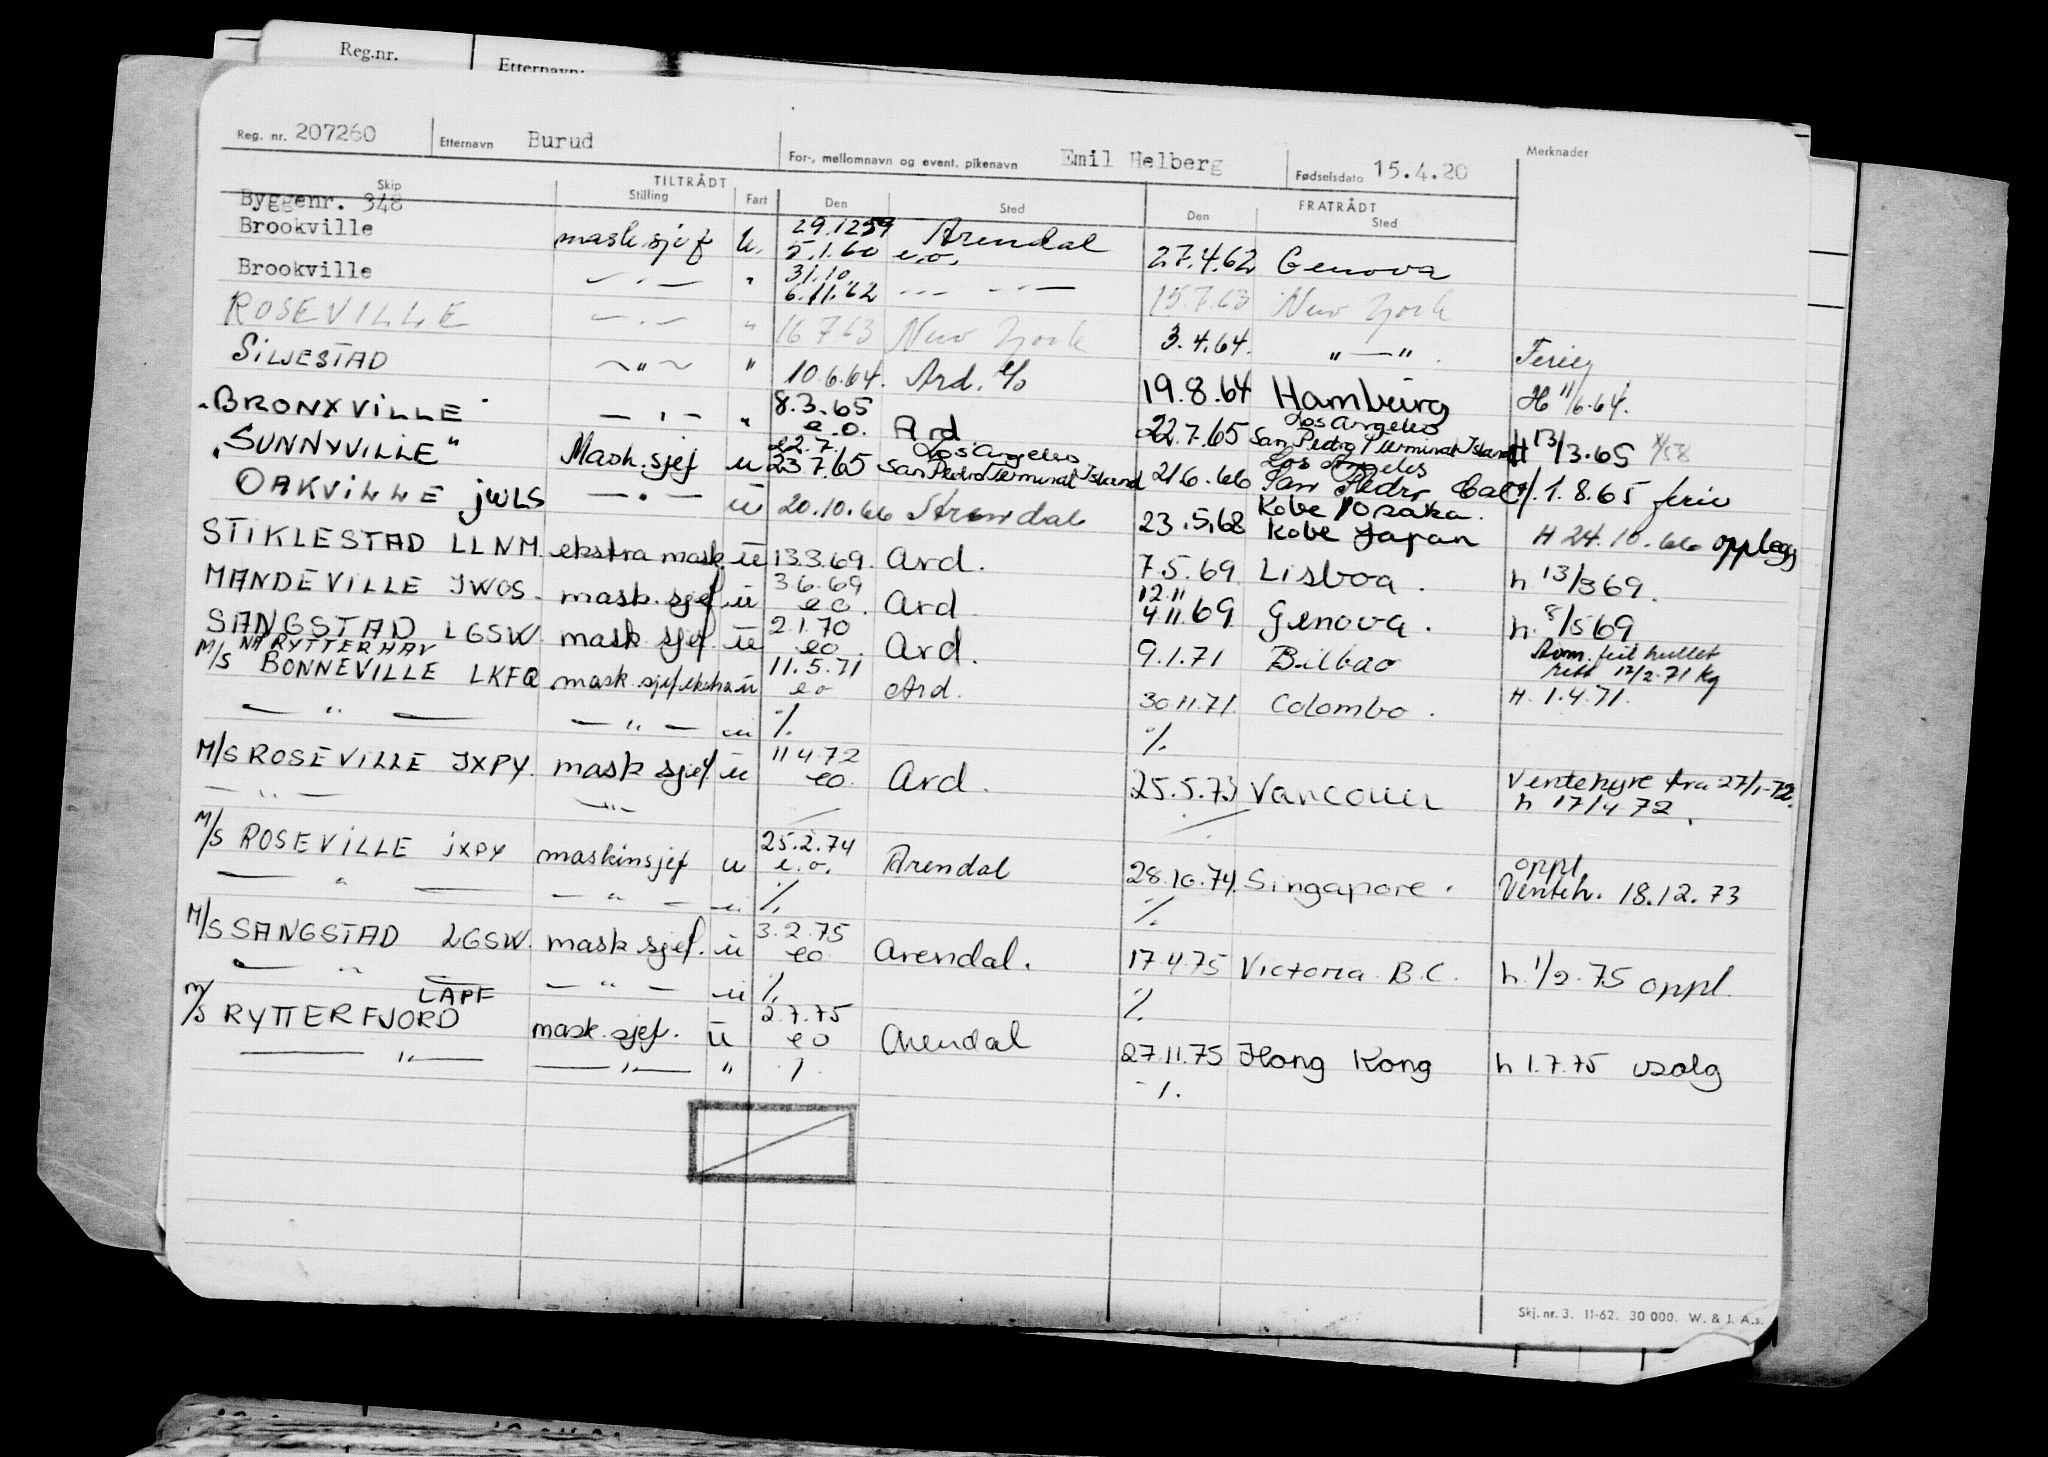 Reg.nr. Etternavn:
Reg. nr. 207260 Etternavn Burud For-, mellomnavn og event. pikenavn Emil Helberg Fødselsdato 15.4.20 Merknader
TILTRÅDT FRATRÅDT
Skip Stilling Fart Den Sted Den Sted
Byggenr. 348 29.1259
Brookville mask.sjef u. 5.1.60 Arendal e.o. 27.4.62 Genova
31.10.
Brookville — " — " 6.11.62 --- --- 15.7.63 New York
ROSEVILLE — " — " 16.7.63 New York 3.4.64. " — " Ferie
SILJESTAD ~ " ~ " 10.6.64. Ard. e/o 19.8.64 Hamburg H 11/6.64.
"BRONXVILLE" — " — " 8.3.65 e.o. Ard 22.7.65 Los Angeles San Pedro/Terminal Island H 13/3.65
"SUNNYVILLE" Mask.sjef u 22.7. 23.7.65 Los Angeles San Pedro Terminal Island 21.6.66 Los Angeles San Pedro Cal. 1.8.65 ferie
OAKVILLE JWLS — " — u 20.10.66 Arendal 23.5.68 Kobe/Osaka. Kobe Japan H 24.10.66 opplegg
STIKLESTAD LLNM ekstra mask. u 13.3.69. Ard. 7.5.69 Lisboa. h 13/3 69.
MANDEVILLE JWOS. mask.sjef u 3.6.69 eo. Ard 12.11 4.11.69 Genova. h. 8/5 69
SANGSTAD LGSW. mask sjef. u 2.1.70 eo Ard. 9.1.71 Bilbao
NÅ RYTTERHAV
M/S BONNEVILLE LKFQ mask.sjef ekstra u 11.5.71 eo Ard. 30.11.71. Colombo. H. 1.4.71.
— " — — " — u ./. ./.
M/S ROSEVILLE JXPY. mask sjef u 11.4.72 eo. Ard. 25.5.73 Vancouver Ventehyre fra 27/1-72. h 17/4 72.
— " — — " —
M/S ROSEVILLE JXPY maskinsjef u 25.2.74 e.o. Arendal 28.10.74. Singapore. oppl Venteh. 18.12.73
— " — — " — u ./. ./.
M/S SANGSTAD LGSW. mask.sjef. u 3.2.75 eo Arendal. 17.4.75 Victoria B.C. h. 1/2.75 oppl.
— " — — " — u ./. ./.
LAPF
M/S RYTTERFJORD mask.sjef. u 2.7.75 eo Arendal 27.11.75 Hong Kong h 1.7.75 usolg
— " — — " — " ./. ./.
Skj. nr. 3. 11-62. 30 000. W. & J. A.s.